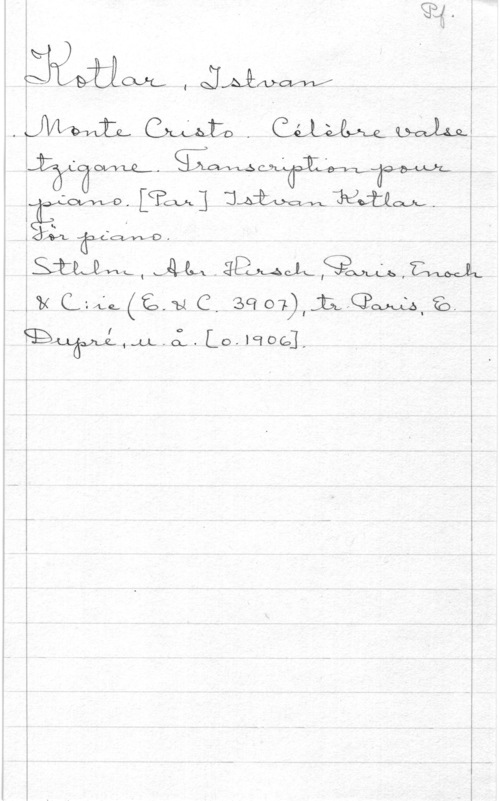 Pf.
Kotlar, Istvan
Monte Cristo. Célèbre valse
tzigane. Transcription pour
piano. [Par] Istvan Kotlar.
För piano.
Sthlm, Abr. Hirsch, Paris, Enoch
& C:ie (E. & C. 3907), tr. Paris, E.
Dupré, u. å. [o. 1906].